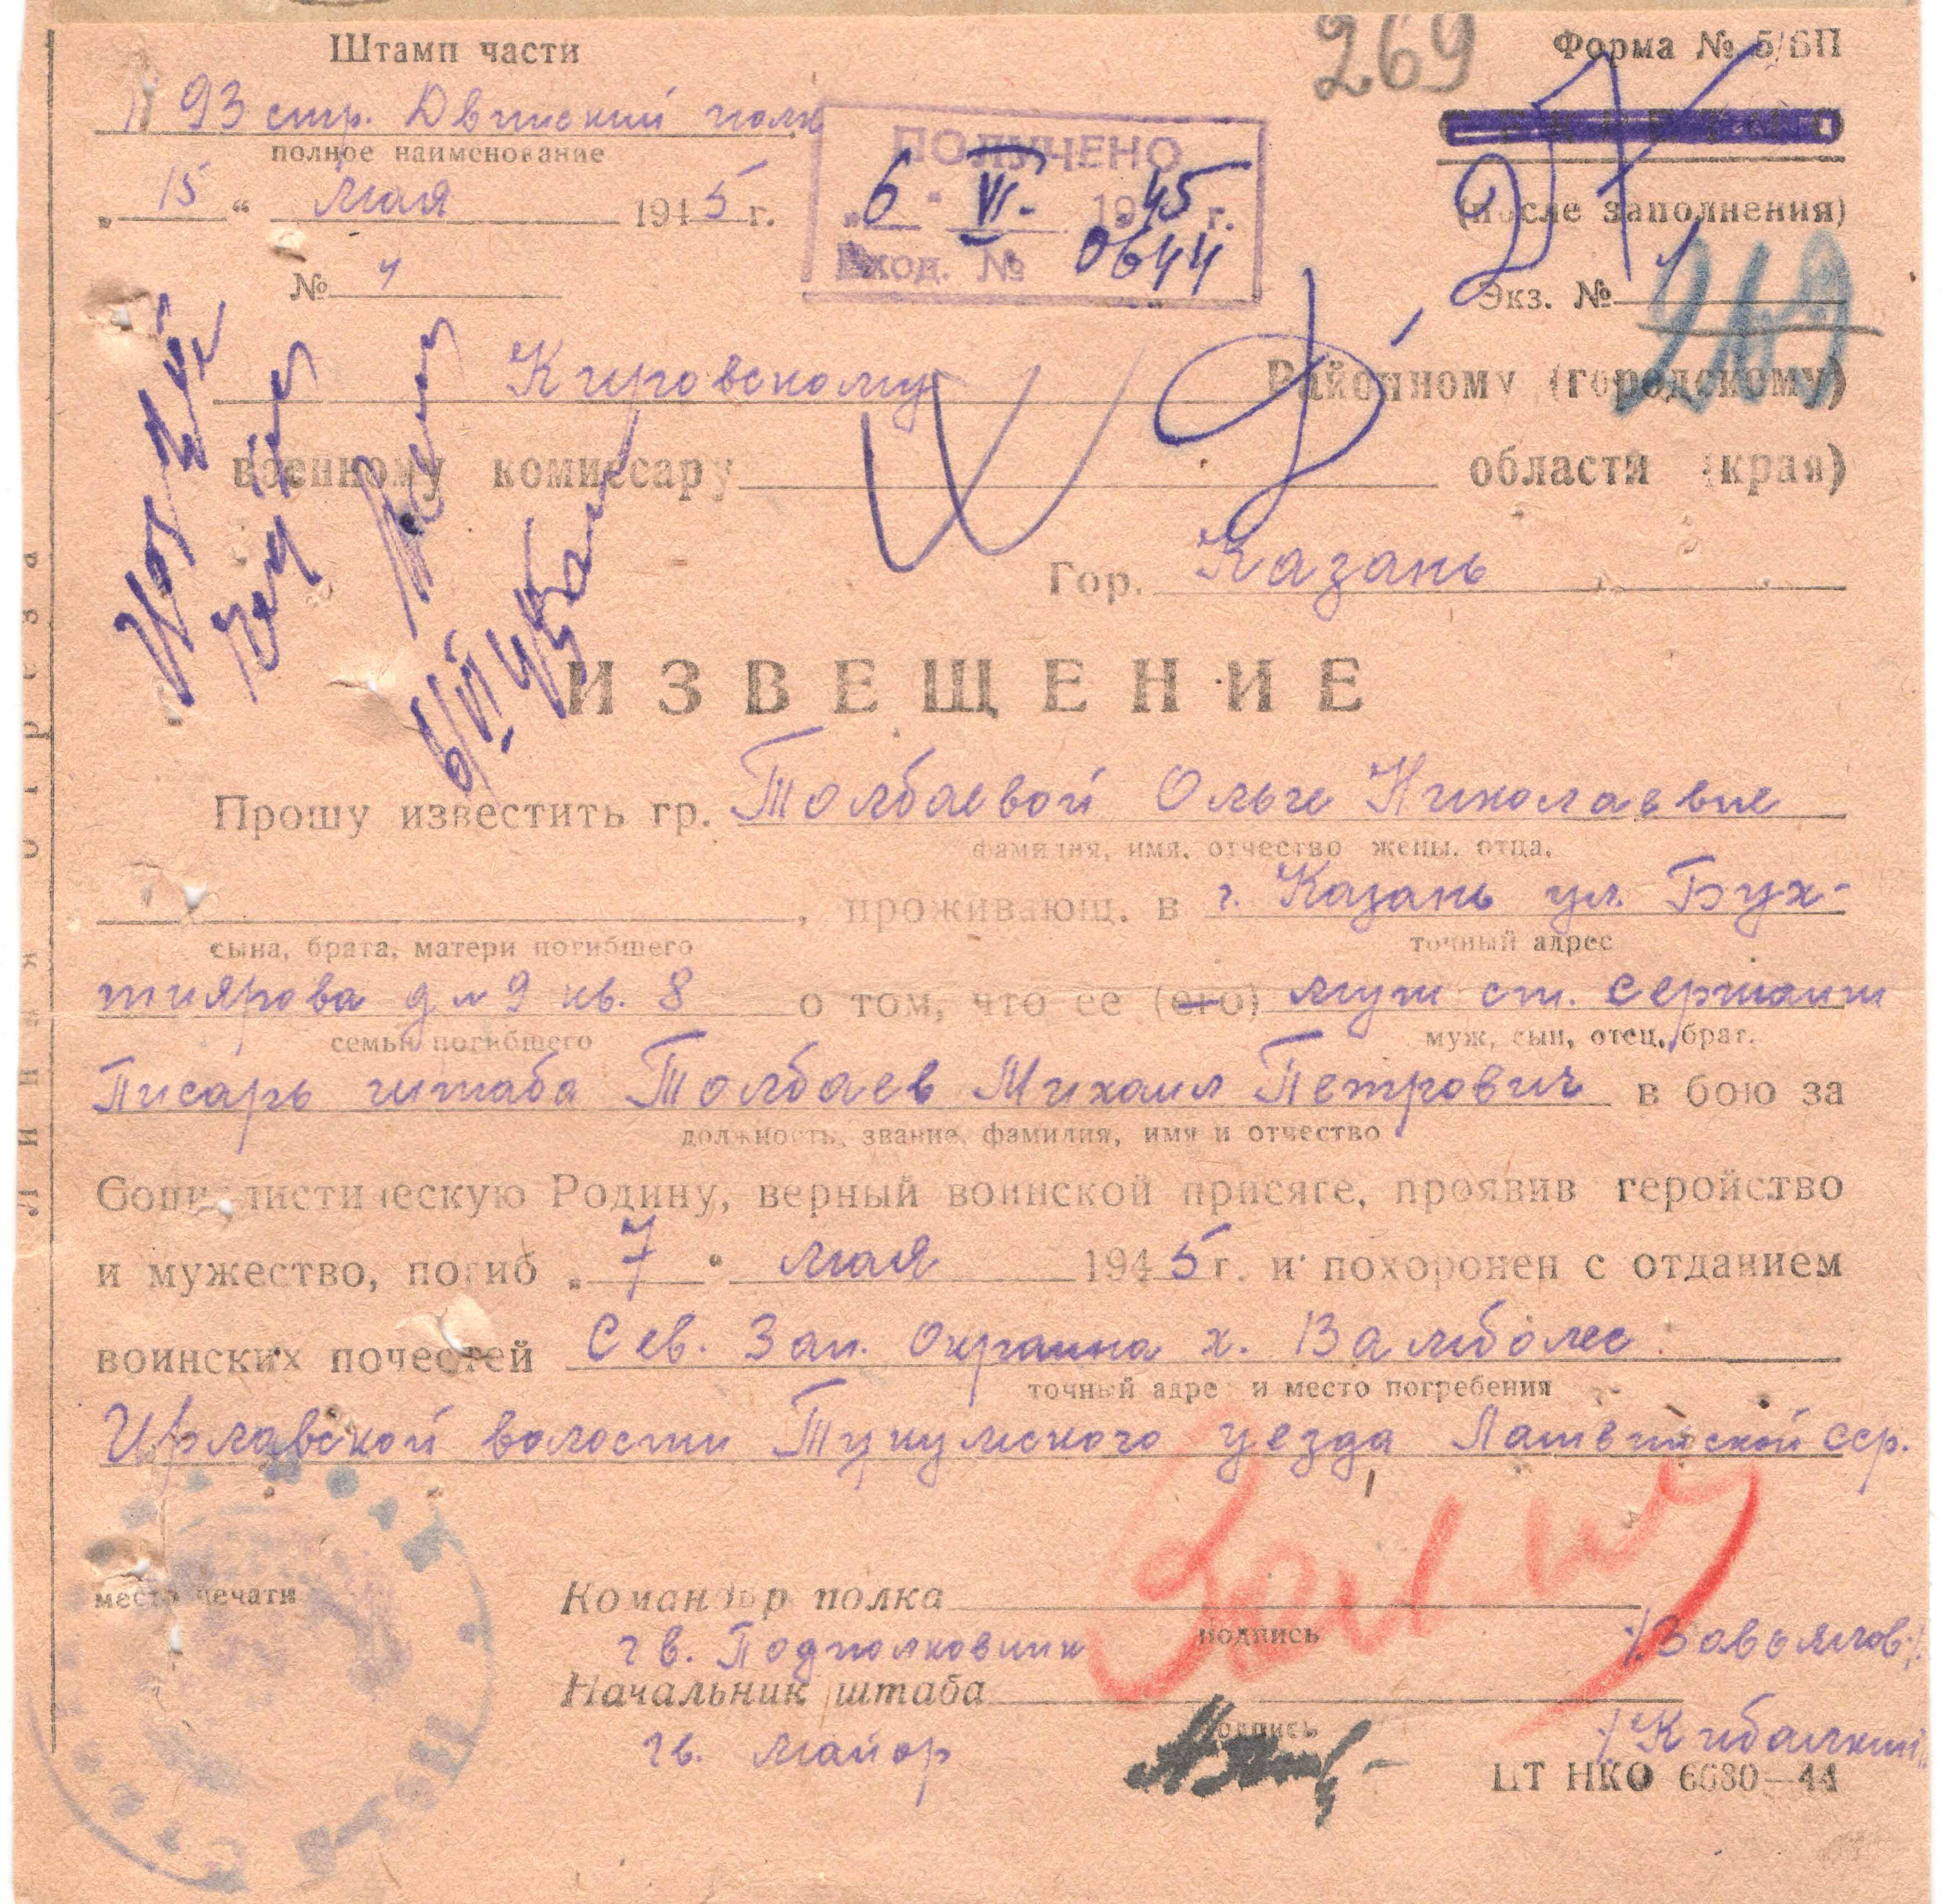 Штамп части
269
Форма № 5/БП
93 стр. Двинский полк
полное наименование
ПОЛУЧЕНО
"6" VI. 1945 г.
Вход. № 0644
„15“ мая 1945 г.
(после заполнения)
№ 4
Экз. № 1
269
Кировскому Районному (городскому)
военному комиссару области (края)
Гор. Казань
ИЗВЕЩЕНИЕ
Прошу известить гр. Толбаевой Ольге Николаевне
фамилия, имя, отчество жены, отца,
, проживающ. в г. Казань ул. Бух-
сына, брата, матери погибшего точный адрес
тиярова д № 9 кв. 8 о том, что ее (его) муж ст. сержант
семьи погибшего муж, сын, отец, брат.
Писарь штаба Толбаев Михаил Петрович в бою за
должность, звание, фамилия, имя и отчество
Социалистическую Родину, верный воинской присяге, проявив геройство
и мужество, погиб „7“ мая 1945 г. и похоронен с отданием
воинских почестей Сев. Зап. Окраина х. Валболес
точный адрес и место погребения
Ирлавской волости Тукумского уезда Латвийской сср.
место печати
Командир полка
подпись
гв. Подполковник /Завьялов/
Начальник штаба
подпись
гв. майор /Кибалкин/
ЦТ НКО 6680—44
Линия отреза